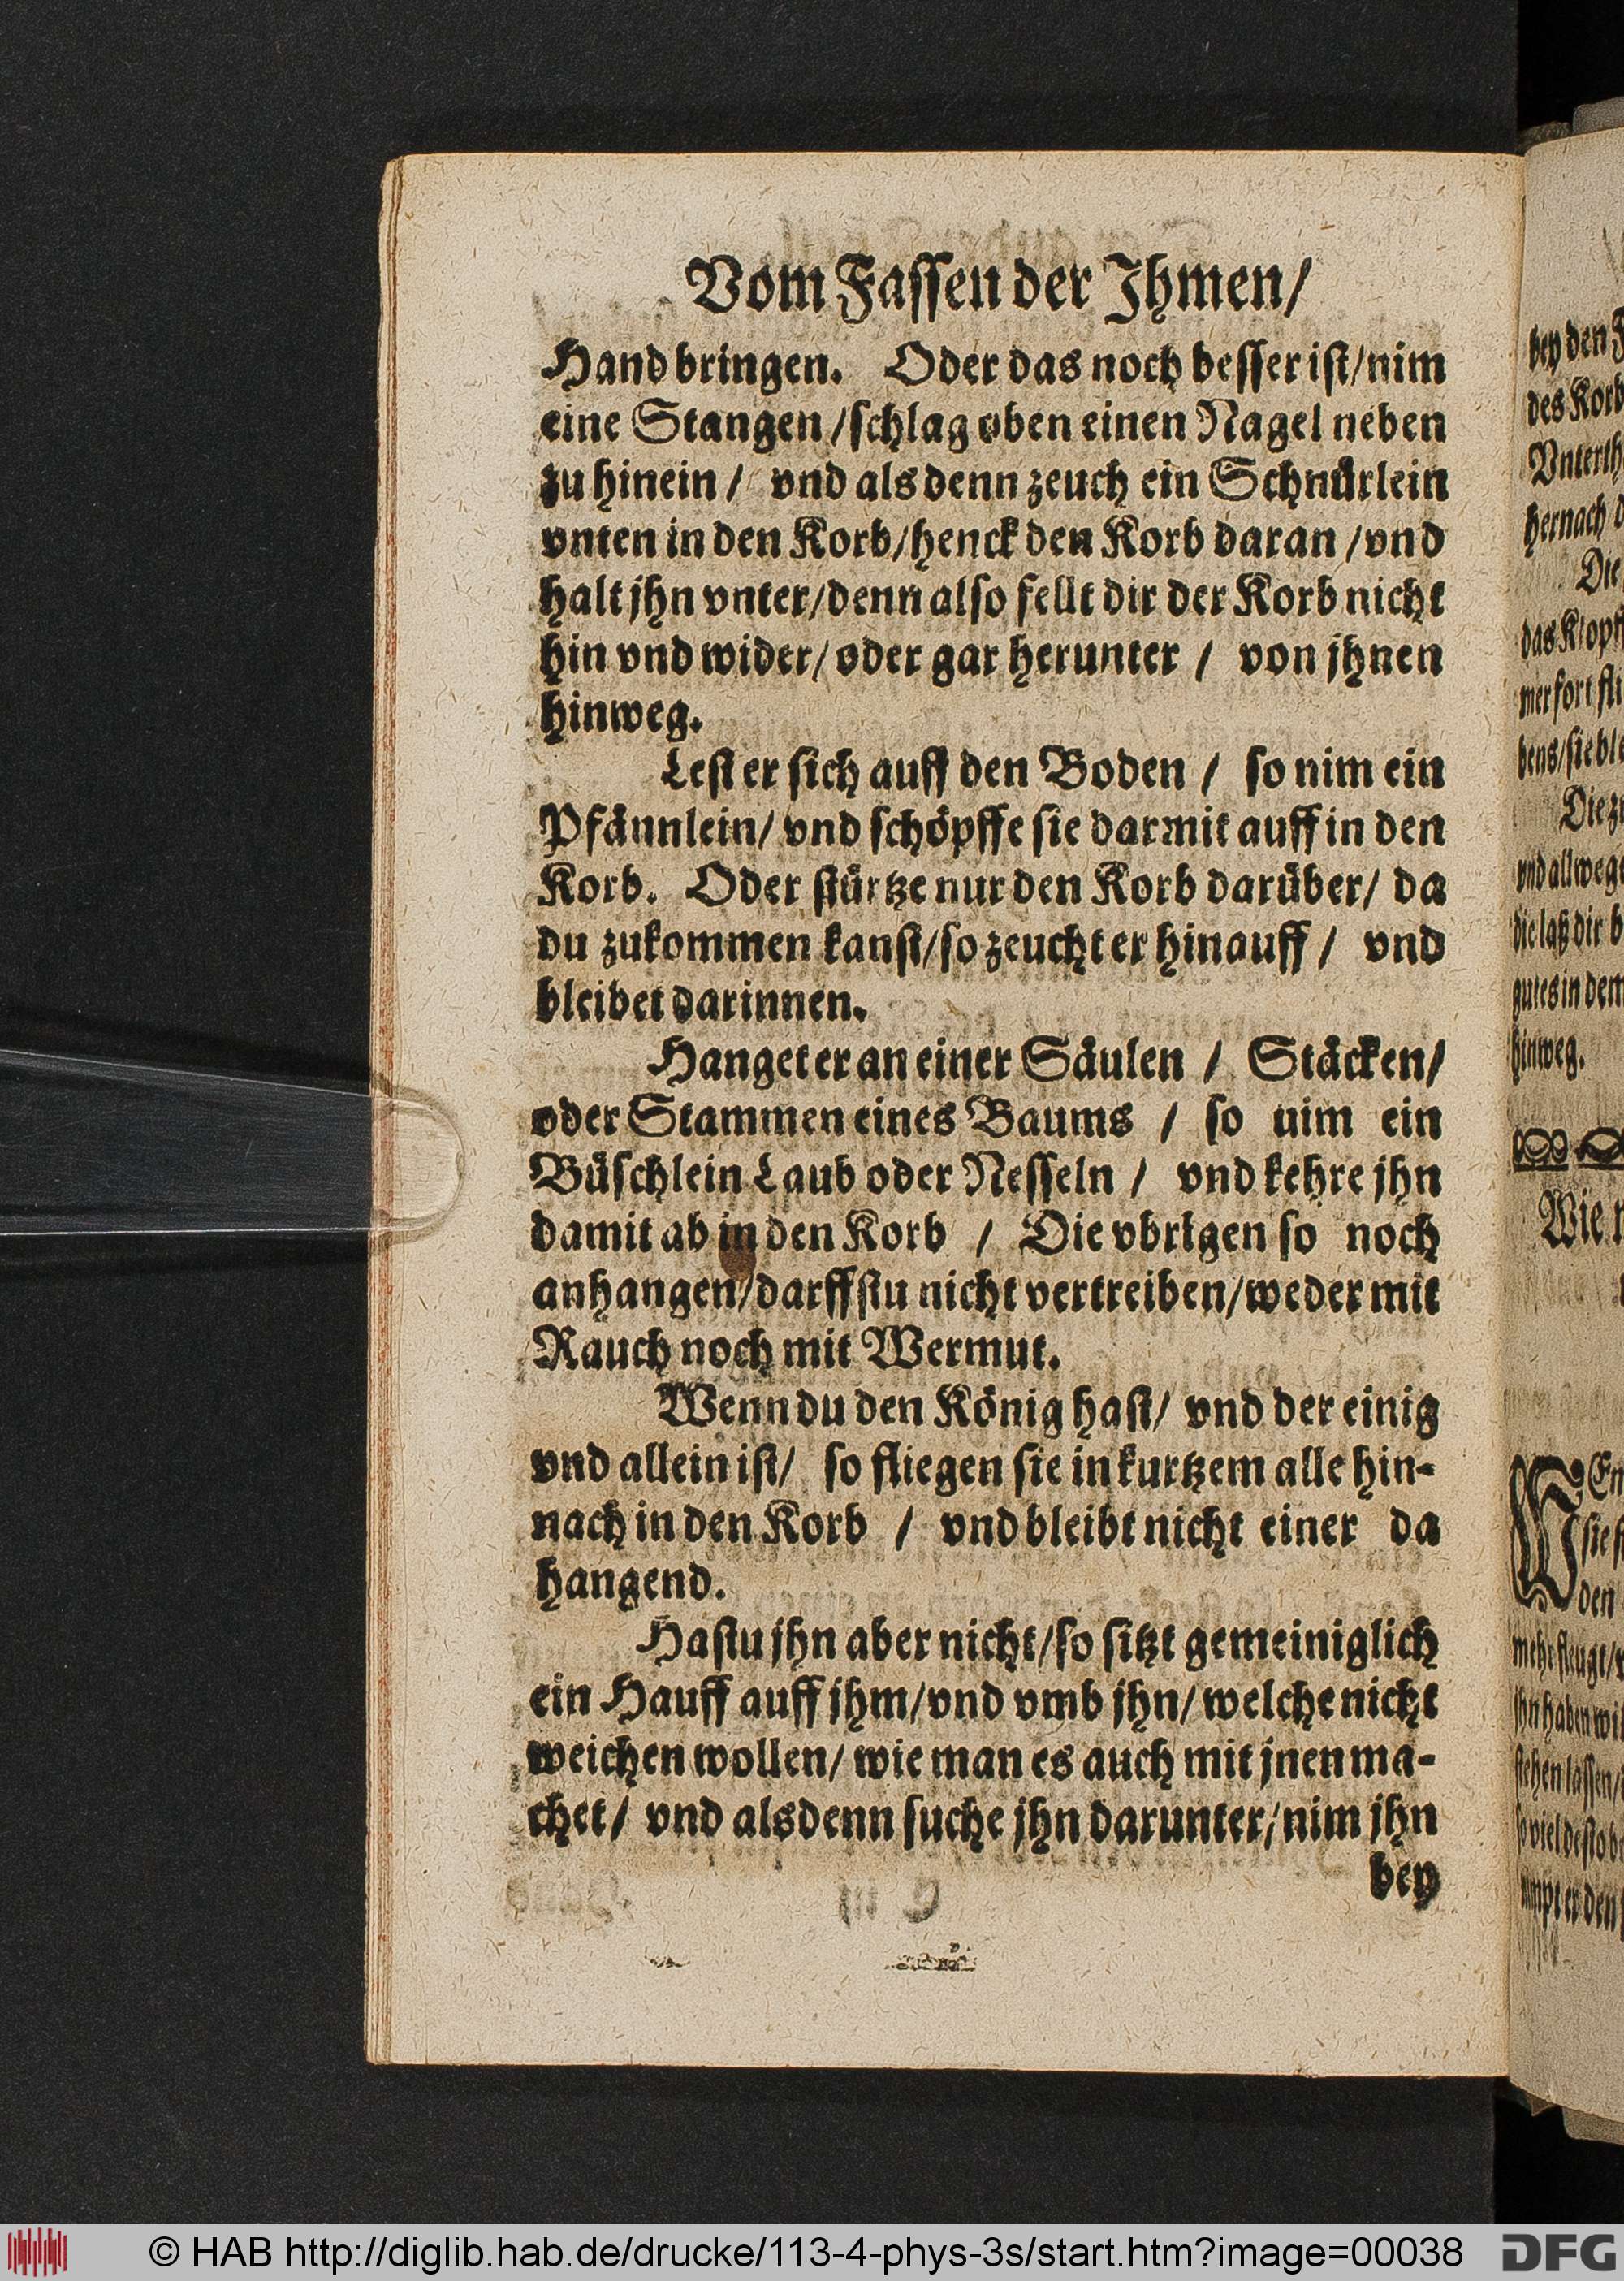 Vom Fassen der Ihmen/
Hand bringen. Oder das noch besser ist/nim
eine Stangen/schlag oben einen Nagel neben
zu hinein/ vnd als denn zeuch ein Schnürlein
vnten in den Korb/henck den Korb daran/vnd
halt jhn vnter/denn also fellt dir der Korb nicht
hin vnd wider/oder gar herunter/ von jhnen
hinweg.
Lest er sich auff den Boden/ so nim ein
Pfännlein/ vnd schöpffe sie darmit auff in den
Korb. Oder stürtze nur den Korb darüber/ da
du zukommen kanst/so zeucht er hinauff/ vnd
bleibet darinnen.
Hanget er an einer Säulen/ Stäcken/
oder Stammen eines Baums/ so uim ein
Büschlein Laub oder Nesseln/ vnd kehre jhn
damit ab in den Korb/ Die vbrigen so noch
anhangen/darffstu nicht vertreiben/weder mit
Rauch noch mit Wermut.
Wenn du den König hast/ vnd der einig
vnd allein ist/ so fliegen sie in kurtzem alle hin-
nach in den Korb/ vnd bleibt nicht einer da
hangend.
Hastu jhn aber nicht/so sitzt gemeiniglich
ein Hauff auff jhm/vnd vmb jhn/welche nicht
weichen wollen/ wie man es auch mit jnen ma-
chet/ vnd alsdenn suche jhn darunter/nim jhn
bey
bey den
des Korb
Vnterth
hernach
Die
das Klopf
mer fort fli
bens/sie ble
Die zu
vnd allwege
die laß dir b
gutes in dem
hinweg.
Wie
WEn
sie s
den
mehr fleugt/
jhn haben wil
stehen lassen/
so viel desto be
nimpt er den
© HAB http://diglib.hab.de/drucke/113-4-phys-3s/start.htm?image=00038
DFG